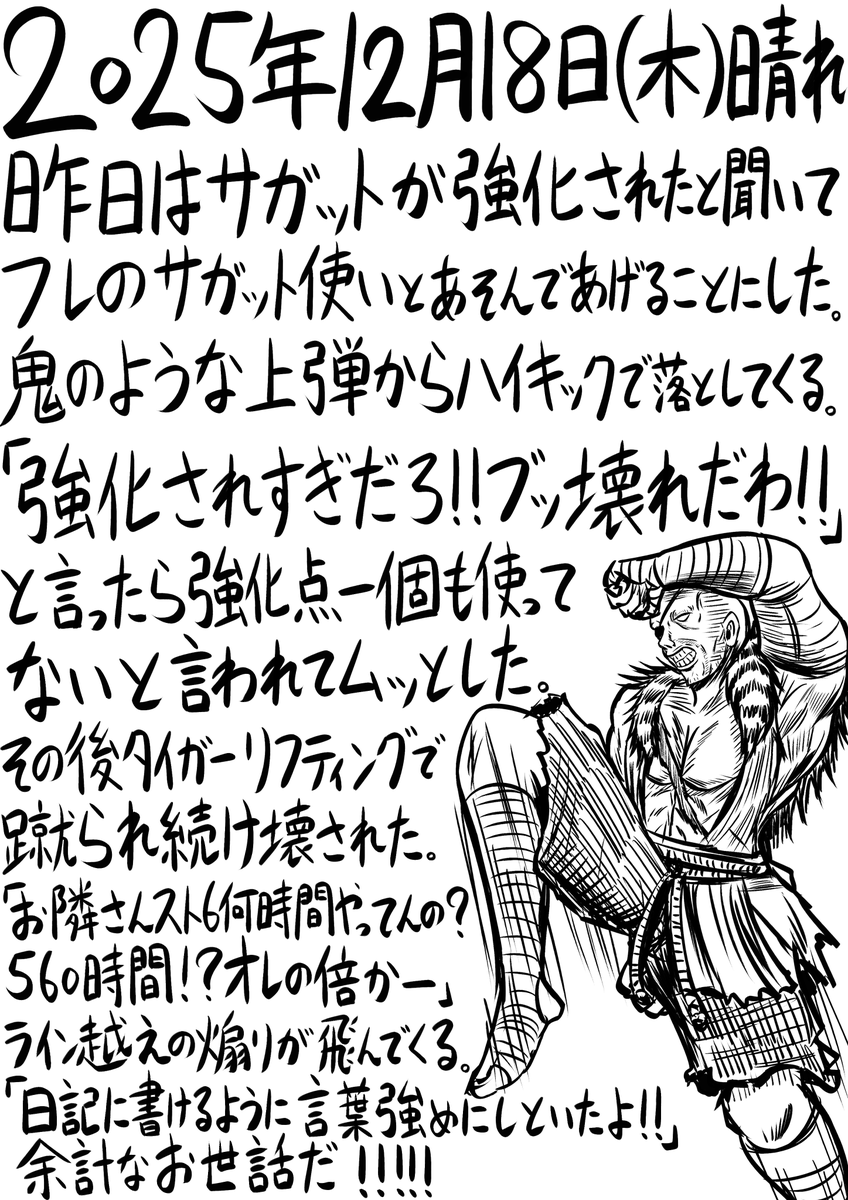 2025年12月18日(木)晴れ
昨日はサガットが強化されたと聞いて
フレのサガット使いとあそんであげることにした。
鬼のような上弾からハイキックで落としてくる。
「強化されすぎだろ!!ブッ壊れだわ!!」
と言ったら強化点一個も使って
ないと言われてムッとした。
その後タイガーリフティングで
蹴られ続け壊された。
「お隣さんスト6何時間やってんの?
560時間!?オレの倍かー」
ライン越えの煽りが飛んでくる。
「日記に書けるように言葉強めにしといたよ!!」
余計なお世話だ!!!!!